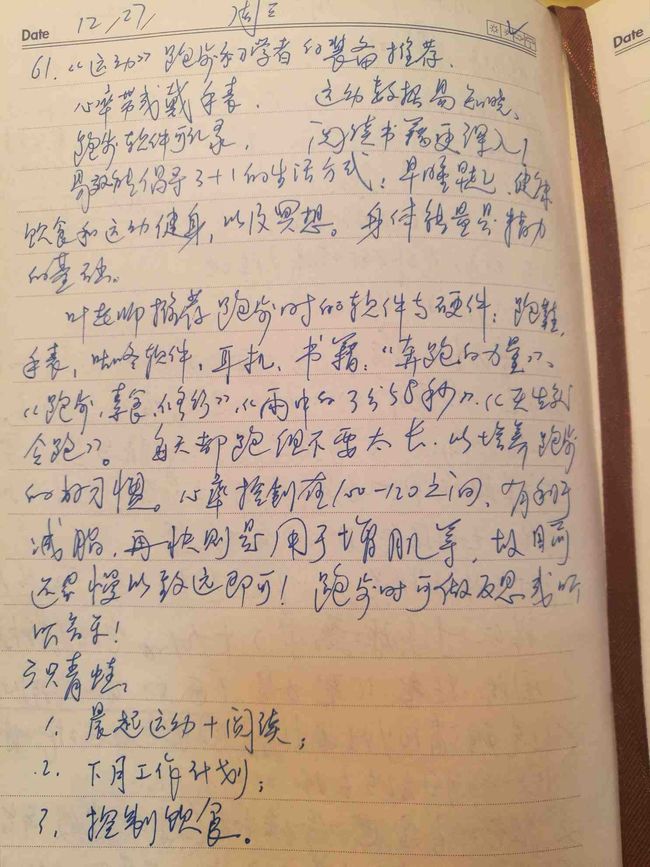 Date 12/27/ 周三
Date
61.《运动》跑步初学者的装备推荐.
心率带或戴手表. 运动数据易知晓,
跑步软件可记录, 阅读书籍更深入!
易效能倡导3+1的生活方式:早睡早起,健康
饮食和运动健身,以及冥想。身体能量是精力
的基础。
叶老师推荐跑步时的软件与硬件:跑鞋,
手表,咕咚软件,耳机,书籍:《奔跑的力量》、
《跑步,素食,修行》、《雨中的3分58秒》、《天生就
会跑》。每天都跑但不要太长.以培养跑步
的好习惯。心率控制在100-120之间,有利于
减脂,再快则是用于增肌等,故目前
还是慢以致远即可!跑步时可做反思或听
听音乐!
三只青蛙:
1. 晨起运动+阅读;
2. 下月工作计划;
3. 控制饮食。